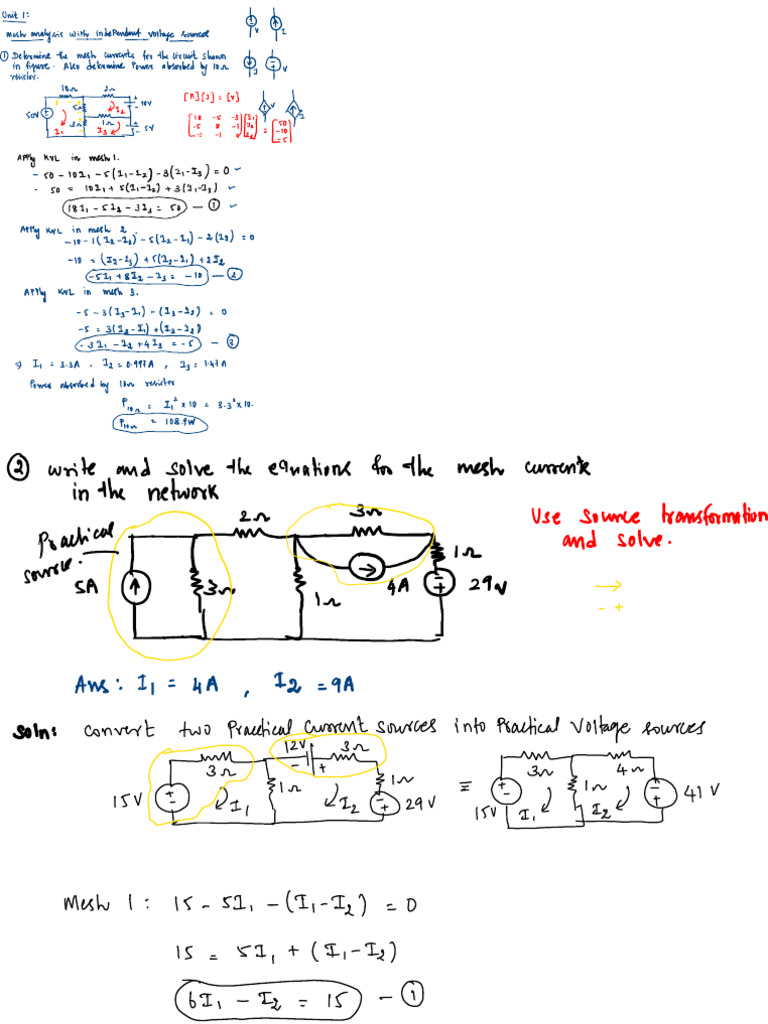 Unit 1:
Mesh analysis with independent voltage sources
① Determine the mesh currents for the circuit shown
in figure. Also determine Power absorbed by 10Ω
resistor.
V I
I V
V
10Ω 2Ω
50V 5Ω 1Ω I2 10V
3Ω
I1 I3 5V
[R][I] = [V]
18 -5 -3 I1 50
-5 8 -1 I2 = -10
-3 -1 4 I3 -5
Apply KVL in mesh 1.
- 50 - 10I1 - 5(I1-I2) - 3(I1-I3) = 0
- 50 = 10I1 + 5(I1-I2) + 3(I1-I3)
18I1 - 5I2 - 3I3 = 50 — ①
Apply KVL in mesh 2
-10 - 1(I2-I3) - 5(I2-I1) - 2(I2) = 0
-10 = (I2-I3) + 5(I2-I1) + 2I2
-5I1 + 8I2 - I3 = -10 — ②
Apply KVL in mesh 3.
-5 - 3(I3-I1) - (I3-I2) = 0
-5 = 3(I3-I1) + (I3-I2)
-3I1 - I2 + 4I3 = -5 — ③
⇒ I1 = 3.3A , I2 = 0.997A , I3 = 1.47A
Power absorbed by 10Ω resistor
P10Ω = I1² × 10 = 3.3² × 10.
P10Ω = 108.9W
② Write and solve the equations for the mesh currents
in the network
Practical
source.
2Ω 3Ω
5A 3Ω 1Ω 4A 1Ω 29V
Use source transformation
and solve.
→
- +
Ans: I1 = 4A , I2 = 9A
Soln: Convert two Practical Current sources into Practical Voltage sources
3Ω 12V - + 3Ω 1Ω
15V I1 1Ω I2 29V
≡
3Ω 4Ω
15V I1 1Ω I2 41V
Mesh 1: 15 - 5I1 - (I1-I2) = 0
15 = 5I1 + (I1-I2)
6I1 - I2 = 15 — ①